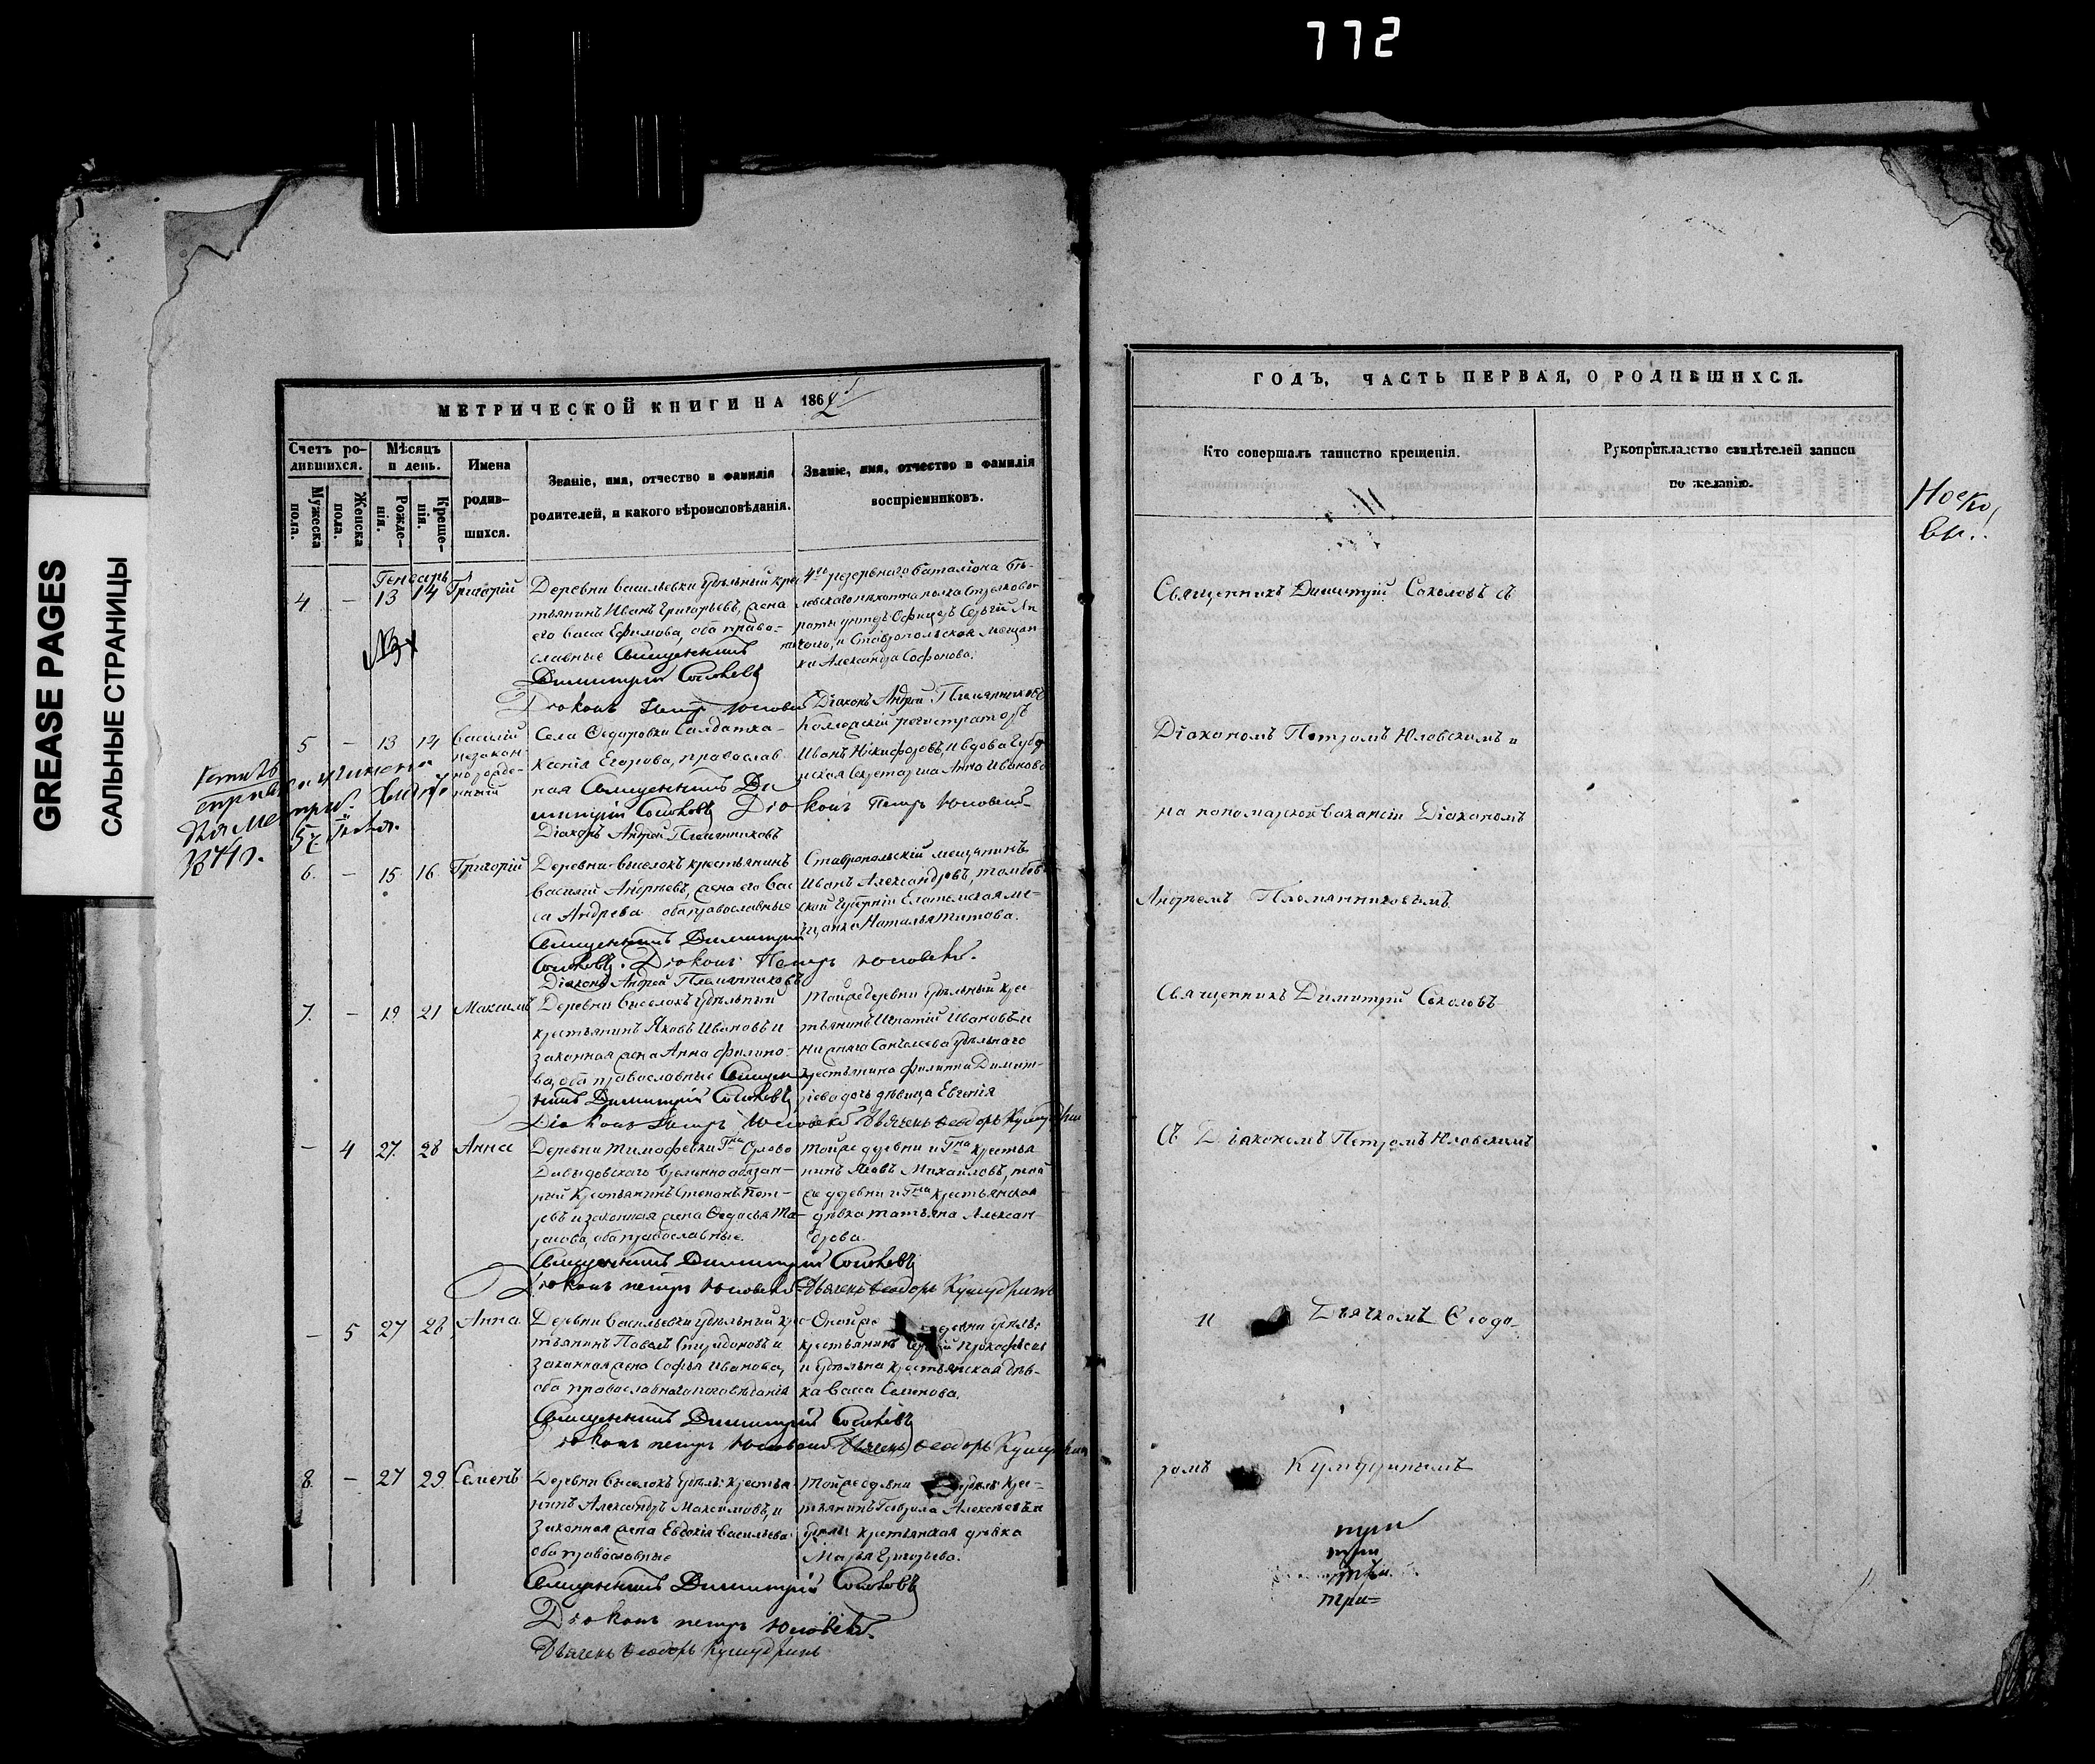 772
GREASE PAGES
САЛЬНЫЕ СТРАНИЦЫ
МЕТРИЧЕСКОЙ КНИГИ НА 1862
Счетъ родившихся.
Мужеска пола.
Женска пола.
Мѣсяцъ и день.
Рожденія.
Крещенія.
Имена родившихся.
Званіе, имя, отчество и фамилія
родителей, и какого вѣроисповѣданія.
Званіе, имя, отчество и фамилія
воспріемниковъ.
Генварь
4 - 13 14 Григорій
Деревни Васильевки удѣльный кре
стьянинъ Иванъ Григорьевъ, жена
его Васса Ефимова, оба право-
славные Священникъ
Димитрій Соколовъ
Діаконъ Петръ Юловскій
4го резервнаго баталіона Бѣ-
левскаго пѣхотна полка Стрѣлковой
роты унтеръ Офицеръ Сергѣй
и Ставропольская мещан
ка Александра Софонова.
Діаконъ Андрей Племянниковъ
5 - 13 14 Василій
незакон-
норожде-
нный
Села Федоровки Солдатка
Ксенія Егорова, православ
ная Священникъ Ди
митрій Соколовъ Діаконъ Петръ Юловскій
Діаконъ Андрей Племянниковъ
Коллежскій регистраторъ
Иванъ Никифоровъ, и вдова Губер
нская Секретарша Анна Иванова
6. - 15 16 Григорій
Деревни Выселокъ крестьянинъ
Василій Андреевъ, жена его Вас
са Андреева оба православные
Священникъ Димитрій
Соколовъ. Діаконъ Петръ Юловскій.
Діаконъ Андрей Племянниковъ
Ставропольскій мещанинъ
Иванъ Александровъ, Тамбов
ской Губерніи Елатомская ме-
щанка Наталья Титова.
7. - 19 21 Максимъ
Деревни Выселокъ удѣльный
крестьянинъ Яковъ Ивановъ и
законная жена Анна Филипо-
ва, оба православные Священ
никъ Димитрій Соколовъ
Діаконъ Петръ Юловскій Дьячекъ Феодоръ Кумудринъ
Той же деревни удѣльный кре
стьянинъ Игнатій Ивановъ и
Нижняго Санчелеева удѣльнаго
крестьянина Филиппа Димит-
ріева дочь дѣвица Евгенія
- 4 27 28 Анна
Деревни Тимофеевки Гна Орлово
Давыдовскаго временно обязан-
ный крестьянинъ Степанъ Пет-
ровъ и законная жена Федосья Та-
расова, оба православные.
Священникъ Димитрій Соколовъ
Діаконъ Петръ Юловскій Дьячекъ Феодоръ Кумудринъ
Той же деревни и Гна крестья
нинъ Яковъ Михайловъ, той
же деревни и Гна крестьянская
дѣвка Татьяна Алексан-
дрова.
- 5 27 28 Анна
Деревни Васильевки удѣльный кре
стьянинъ Павелъ Спиридоновъ и
законная жена Софья Иванова,
оба православнаго исповѣданія
Священникъ Димитрій Соколовъ
Діаконъ Петръ Юловскій Дьячекъ Феодоръ Кумудринъ
деревни удѣль:
крестьянинъ Сергѣй Прокофьевъ
и удѣльна крестьянская дѣв-
ка Васса Семенова.
8. - 27 29 Семенъ
Деревни Выселокъ удѣль: крестья
нинъ Александръ Максимовъ, и
законная жена Евдокія Васильева
оба православные
Священникъ Димитрій Соколовъ
Діаконъ Петръ Юловскій.
Дьячекъ Феодоръ Кумудринъ
Той же деревни удѣль: крес-
тьянинъ Гаврила Алексѣевъ и
удѣль: крестьянская дѣвка
Марья Григорьева.
ГОДЪ, ЧАСТЬ ПЕРВАЯ, О РОДИВШИХСЯ.
Кто совершалъ таинство крещенія.
Рукоприкладство свидѣтелей записи
по желанію.
Священникъ Димитрій Соколовъ съ
Діакономъ Петромъ Юловскимъ и
на пономарской ваканціи Діакономъ
Андреемъ Племянниковымъ.
Священникъ Димитрій Соколовъ
Съ Діакономъ Петромъ Юловскимъ
и Дьячкомъ Феодо-
ромъ Кумудринымъ
три
три
три
три=